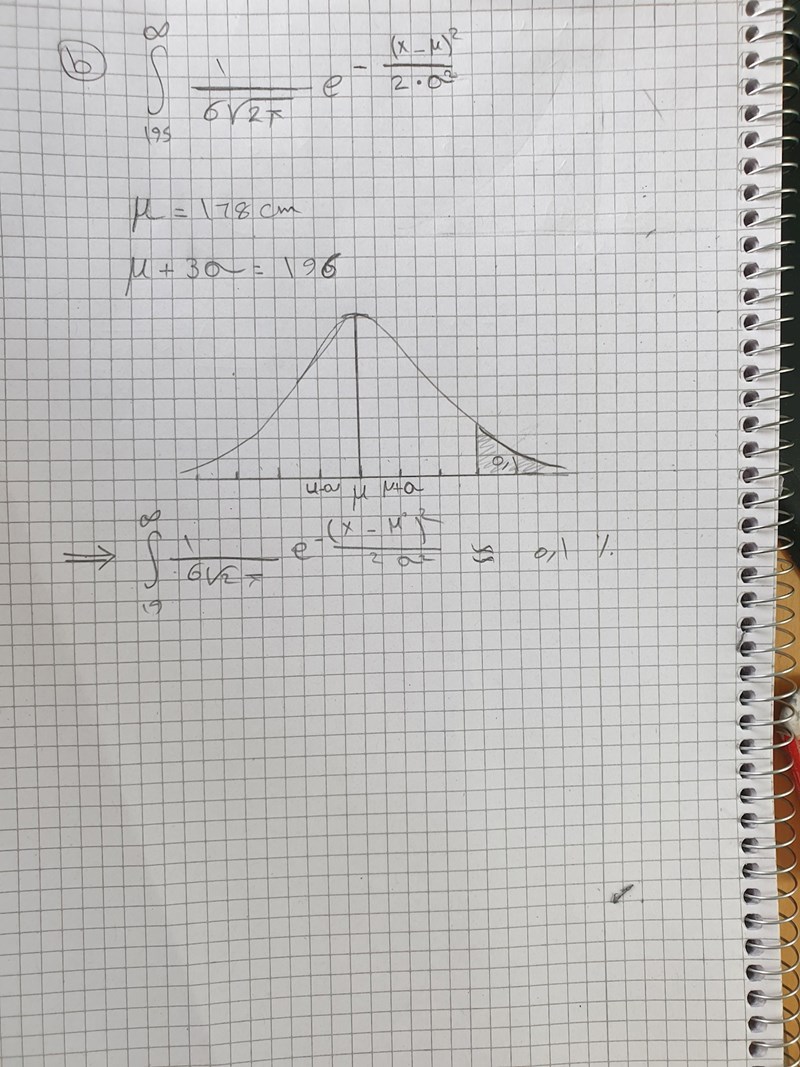 b) ∞ ∫ 195 1 / 6√2π e^ - (x - μ)² / 2 · σ²
μ = 178 cm
μ + 3σ = 196
0,1
μ-σ μ μ+σ
⟹ ∞ ∫ 19 1 / 6√2π e^ - (x - μ)² / 2 σ² ≈ 0,1 %